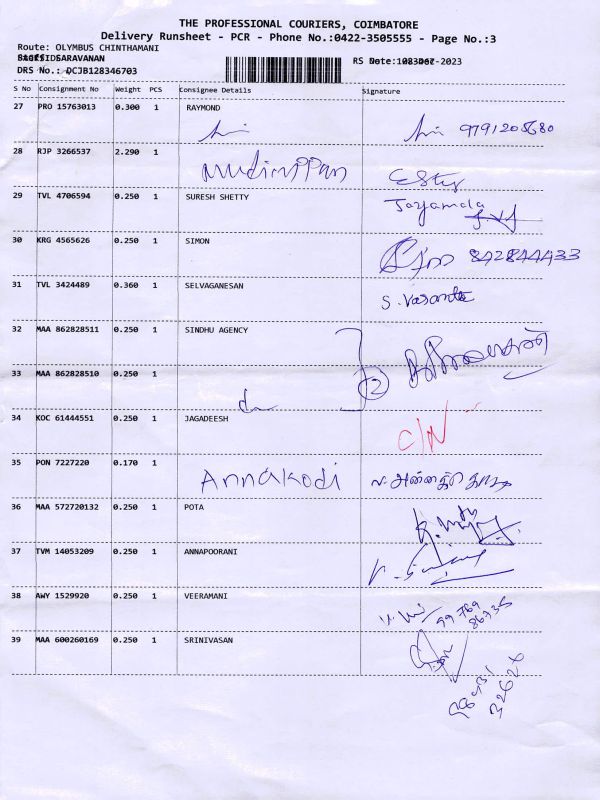 THE PROFESSIONAL COURIERS, COIMBATORE
Delivery Runsheet - PCR - Phone No.:0422-3505555 - Page No.:3
Route: OLYMBUS CHINTHAMANI
SARAVANAN
DRS No.: DCJB128346703
S No Consignment No Weight PCS Consignee Details Signature
27 PRO 15763013 0.300 1 RAYMOND
9791205680
28 RJP 3266537 2.290 1
29 TVL 4706594 0.250 1 SURESH SHETTY Jayamala
30 KRG 4565626 0.250 1 SIMON
842844433
31 TVL 3424489 0.360 1 SELVAGANESAN
S. Vasantha
32 MAA 862828511 0.250 1 SINDHU AGENCY
2
33 MAA 862828510 0.250 1
do
34 KOC 61444551 0.250 1 JAGADEESH
C/N
35 PON 7227220 0.170 1
Annakodi
36 MAA 572720132 0.250 1 POTA
37 TVM 14053209 0.250 1 ANNAPOORANI
38 AWY 1529920 0.250 1 VEERAMANI
99769
86735
39 MAA 600260169 0.250 1 SRINIVASAN